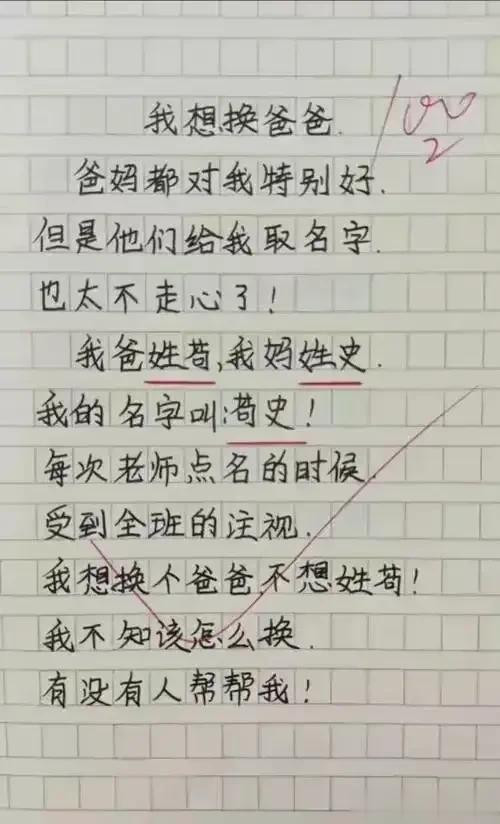 我想换爸爸.
100
2
爸妈都对我特别好.
但是他们给我取名字.
也太不走心了!
我爸姓苟,我妈姓史.
我的名字叫:苟史!
每次老师点名的时候.
受到全班的注视.
我想换个爸爸,不想姓苟!
我不知该怎么换.
有没有人帮帮我!